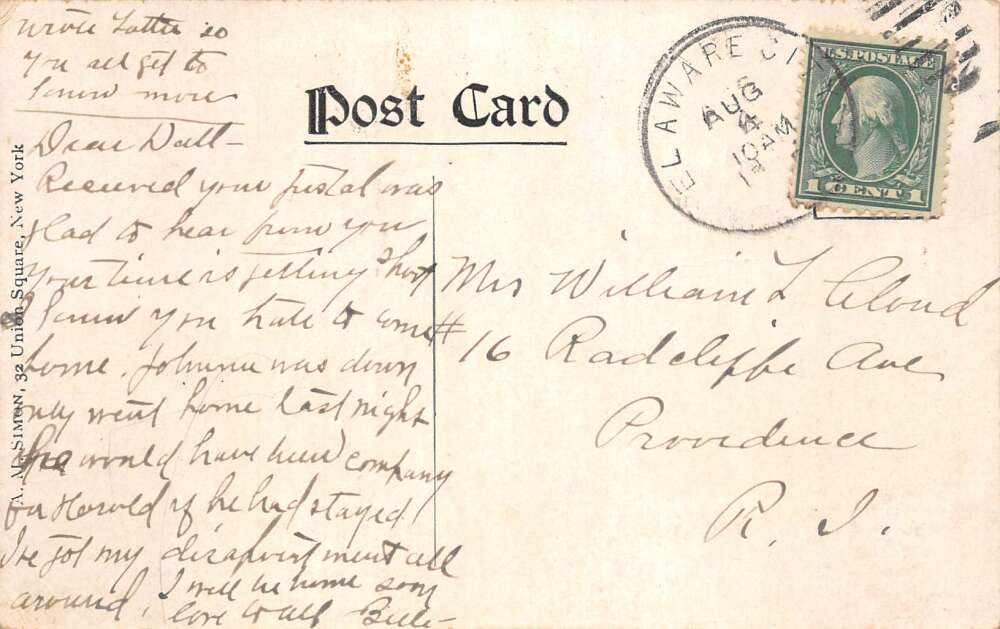 wrote Lottie so
you all get to
know more
Post Card
ELAWARE CIT
AUG
4
10 AM
U.S. POSTAGE
1 CENT 1
A. M. SIMON, 32 Union Square, New York
Dear Dall-
Received your postal was
glad to hear from you
Your time is getting short
I know you hate to come
home. Johnnie was down
only went home last night
he would have been company
for Harold if he had stayed
I've got my disapointment all
around. I will be home soon
love to all Belle-
Mrs William L Cloud
#16 Radcliffe Ave
Providence
R. I.